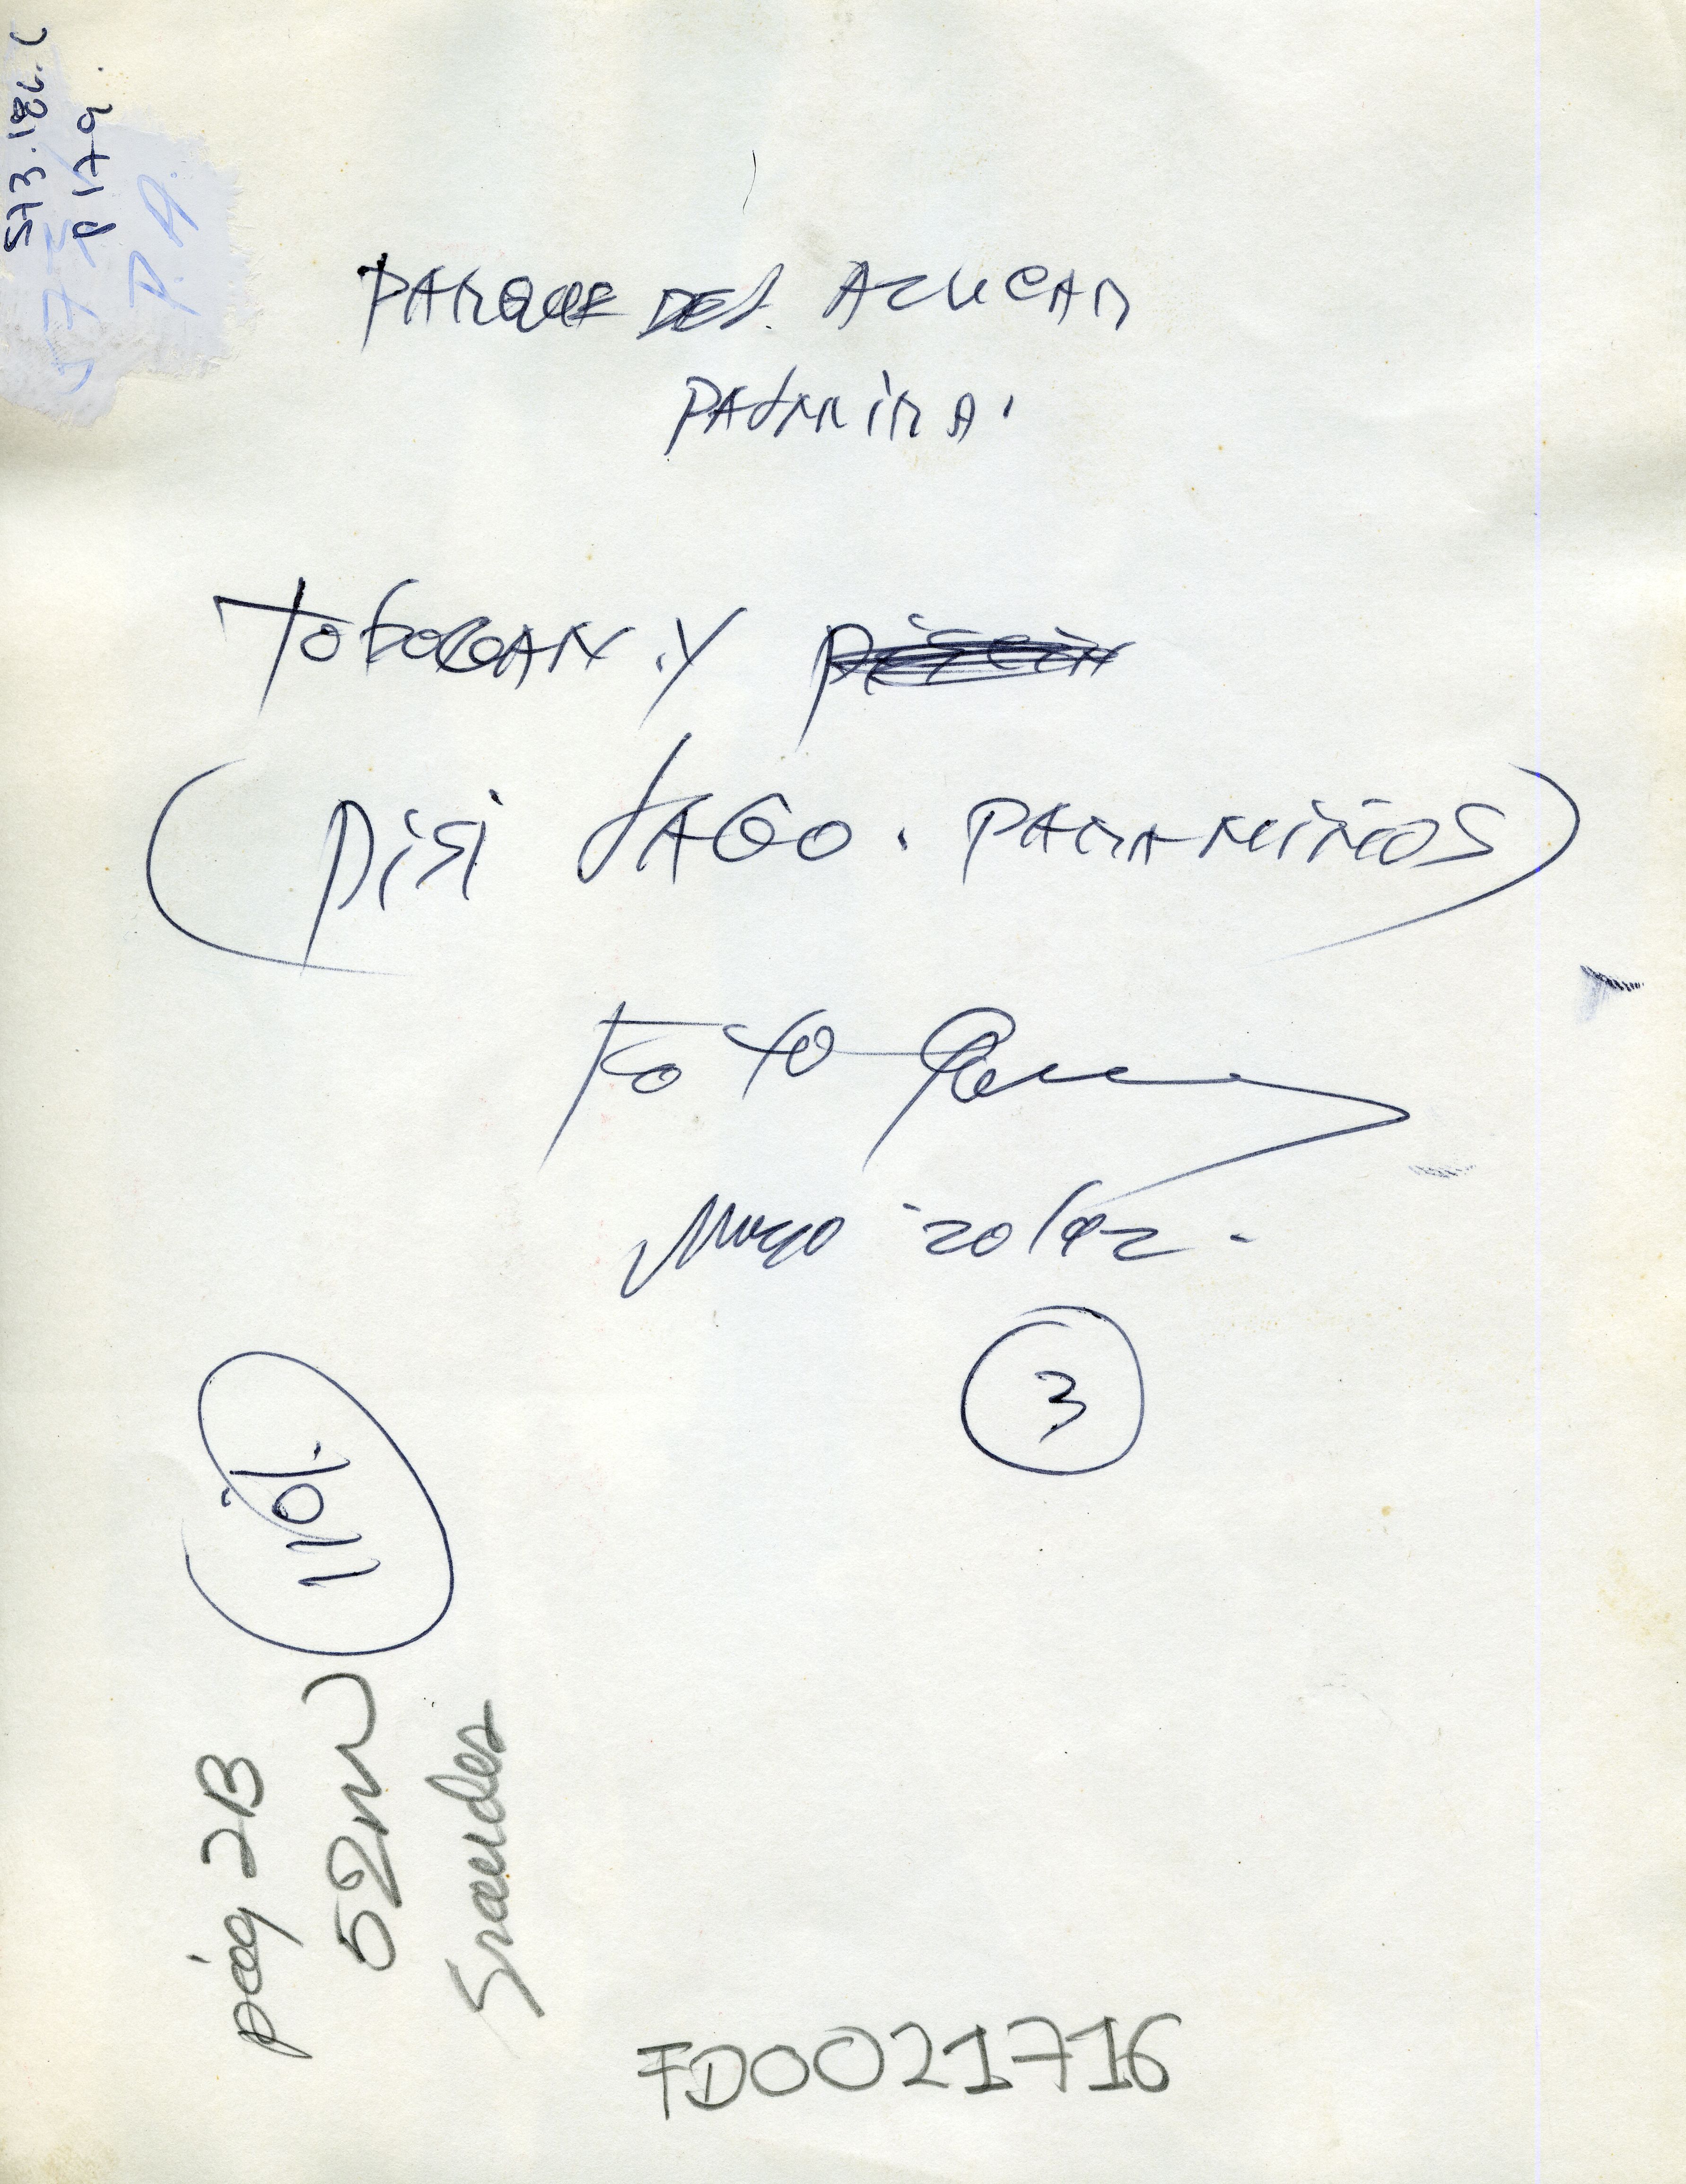 573.186.C
P179
P.A.
PARQUE DEL AZUCAR
PALMIRA.
TOBOGAN Y
(PISI LAGO. PARA NIÑOS)
FOTO
Mayo 20/92-
3
110%.
pág 2B
52
FD0021716